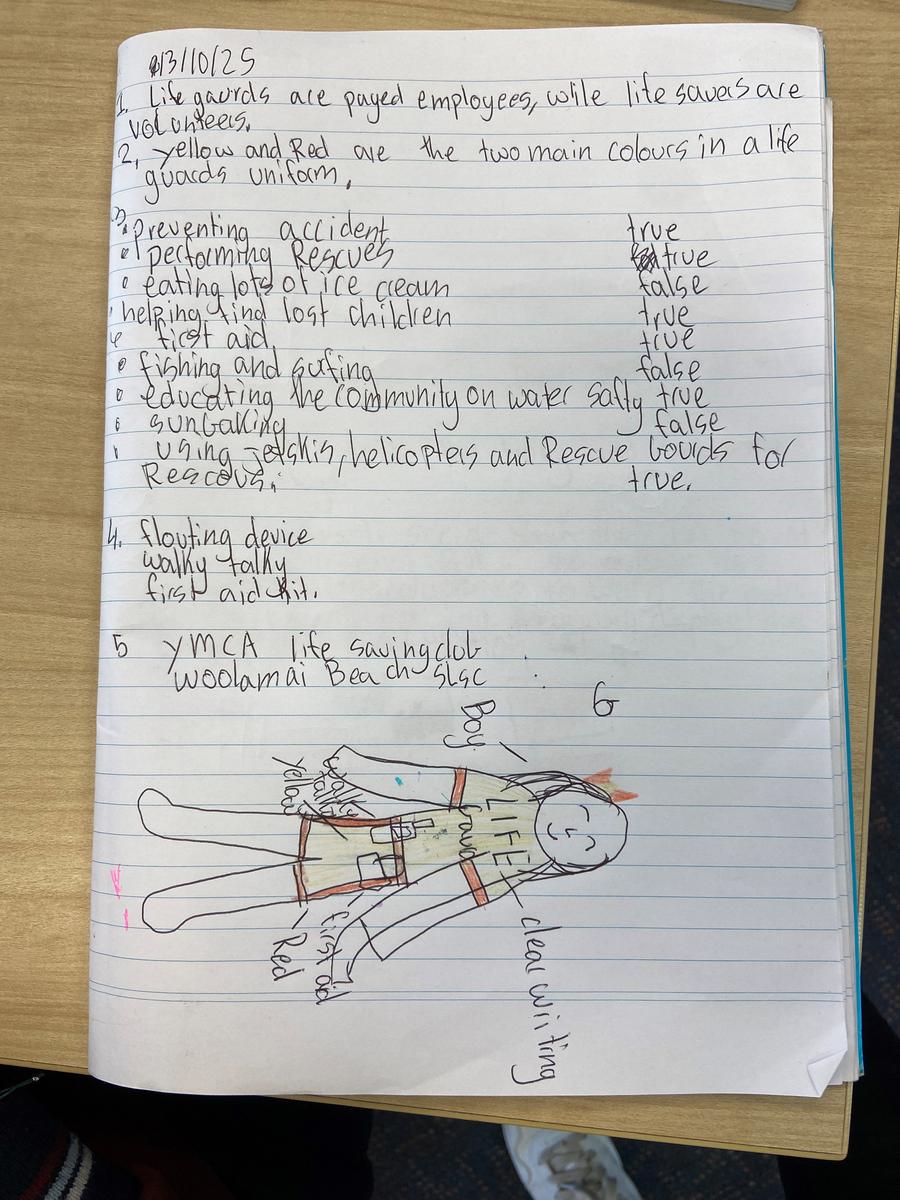 13/10/25
1. Life gaurds are payed employees, while life savers are
volunteers.
2. yellow and Red are the two main colours in a life
guards uniform.
3.
• preventing accident true
• performing Rescues true
• eating lots of ice cream false
• helping find lost children true
• first aid. true
• fishing and surfing false
• educating the community on water safty true
• sunbaking false
• using jetskis, helicopters and Rescue bourds for
Rescous. true.
4. flouting device
walky talky
first aid kit.
5 YMCA life saving club
woolamai Beach SLSC
6
Boy
LIFE
Gaurd
clear writing
yellow
walky
talky
first aid
Red